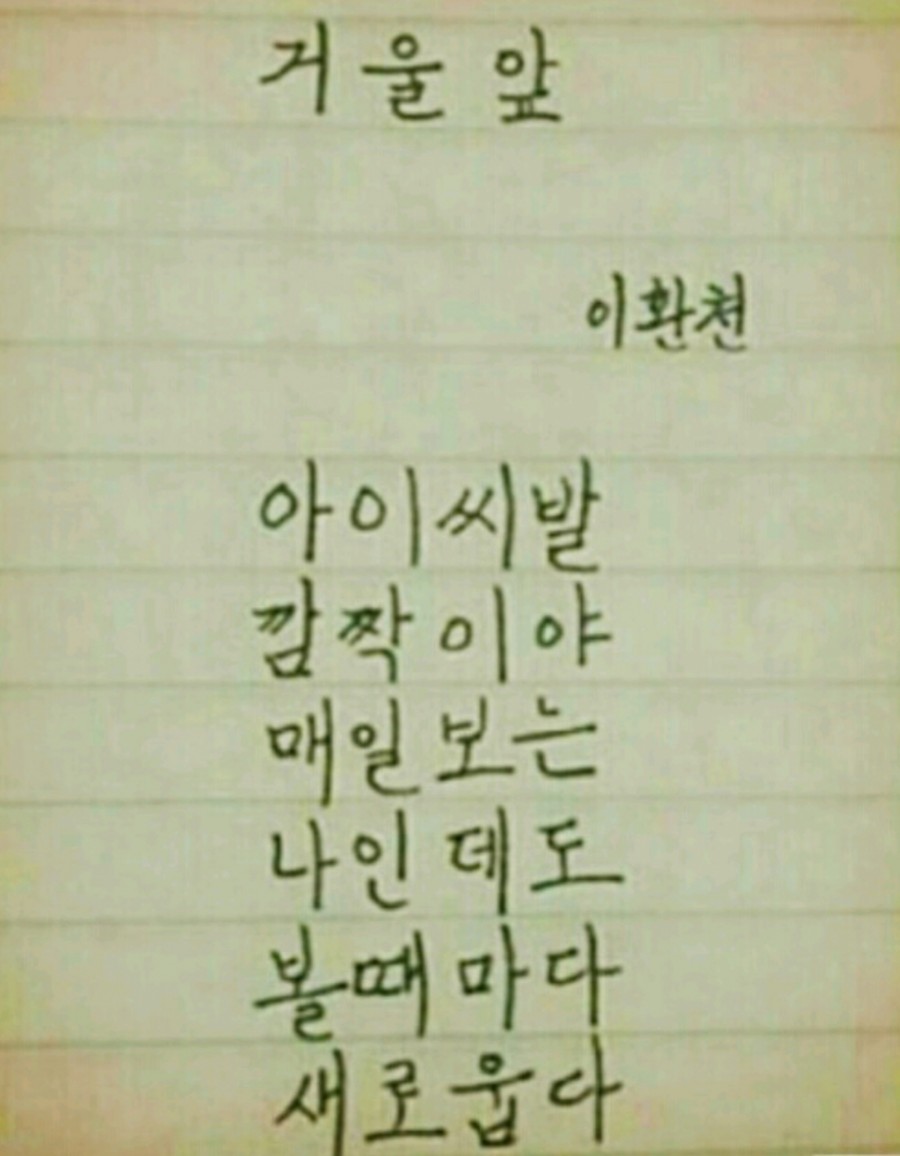 거울 앞
이환천
아이씨발
깜짝이야
매일보는
나인데도
볼때마다
새로웁다